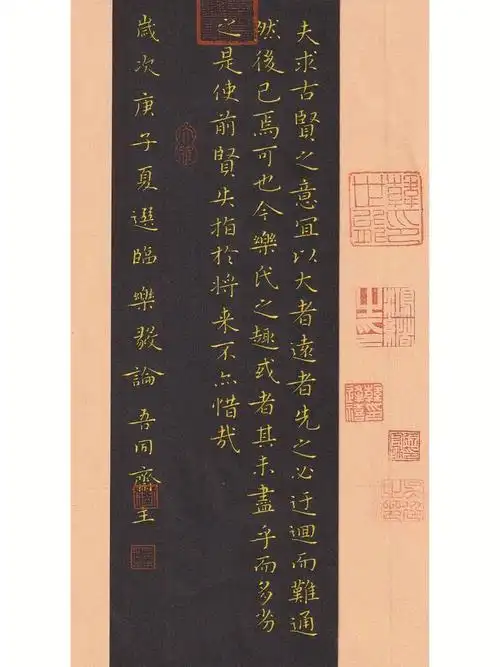 夫求古賢之意宜以大者遠者先之必迂迴而難通
然後已焉可也今樂氏之趣或者其未盡乎而多劣
之是使前賢失指於将来不亦惜哉
歲次庚子夏選臨樂毅論 吾同齋主